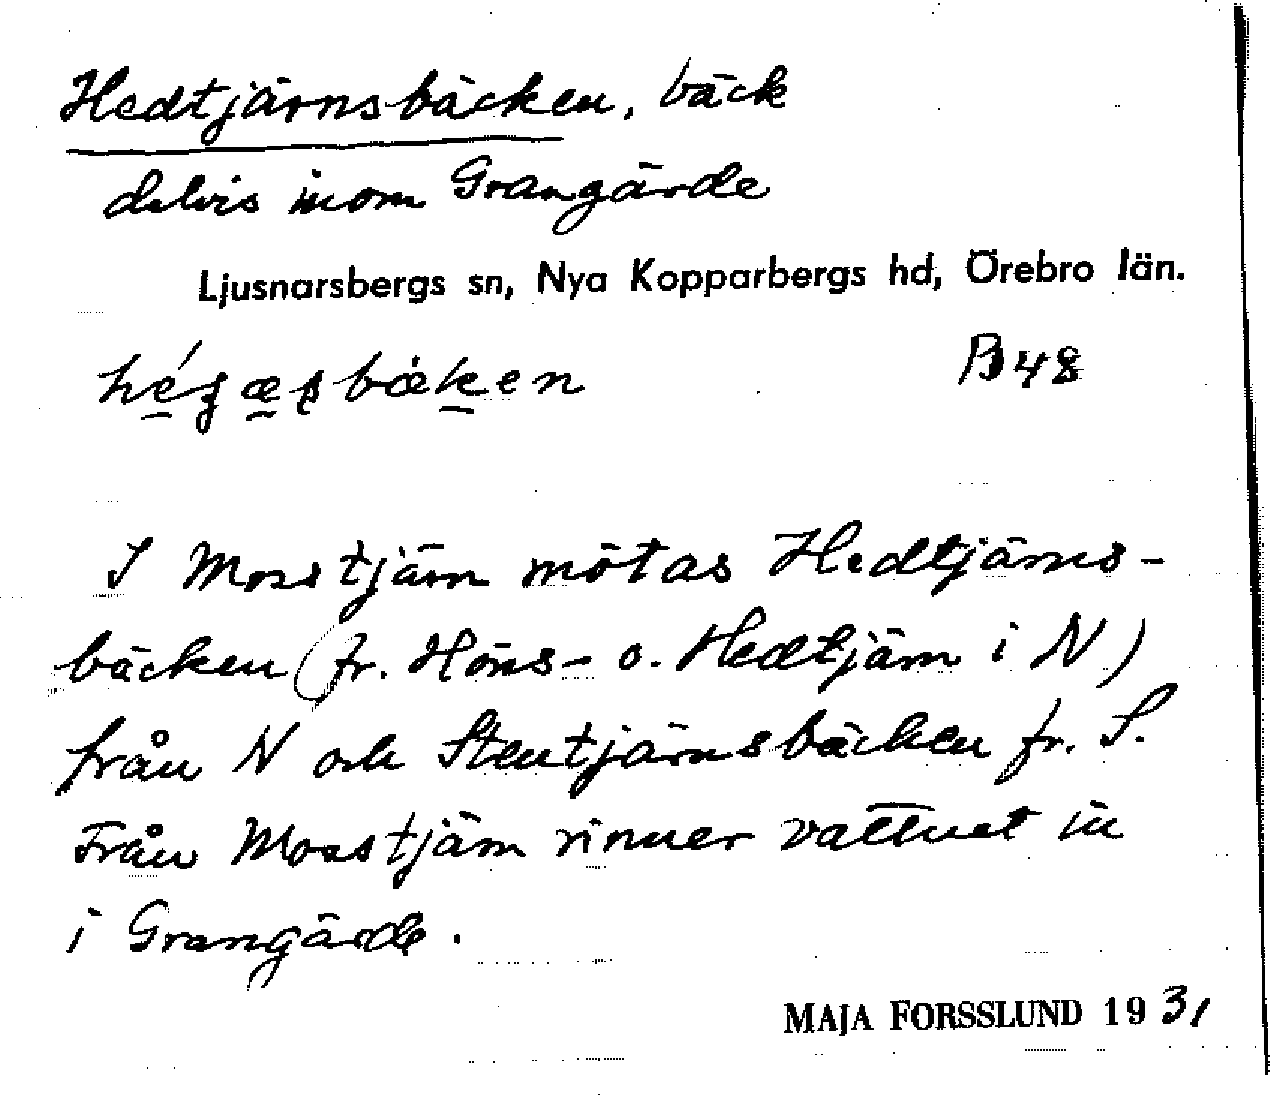 Hedtjärnsbäcken, bäck
delvis inom Grangärde
Ljusnarsbergs sn, Nya Kopparbergs hd, Örebro län.
B48
I Mosstjärn mötas Hedtjärns-
bäcken (fr. Höns- o. Hedtjärn i N)
från N och Stentjärnsbäcken fr. S.
Från Mosstjärn rinner vattnet in
i Grangärde.
MAJA FORSSLUND 1931